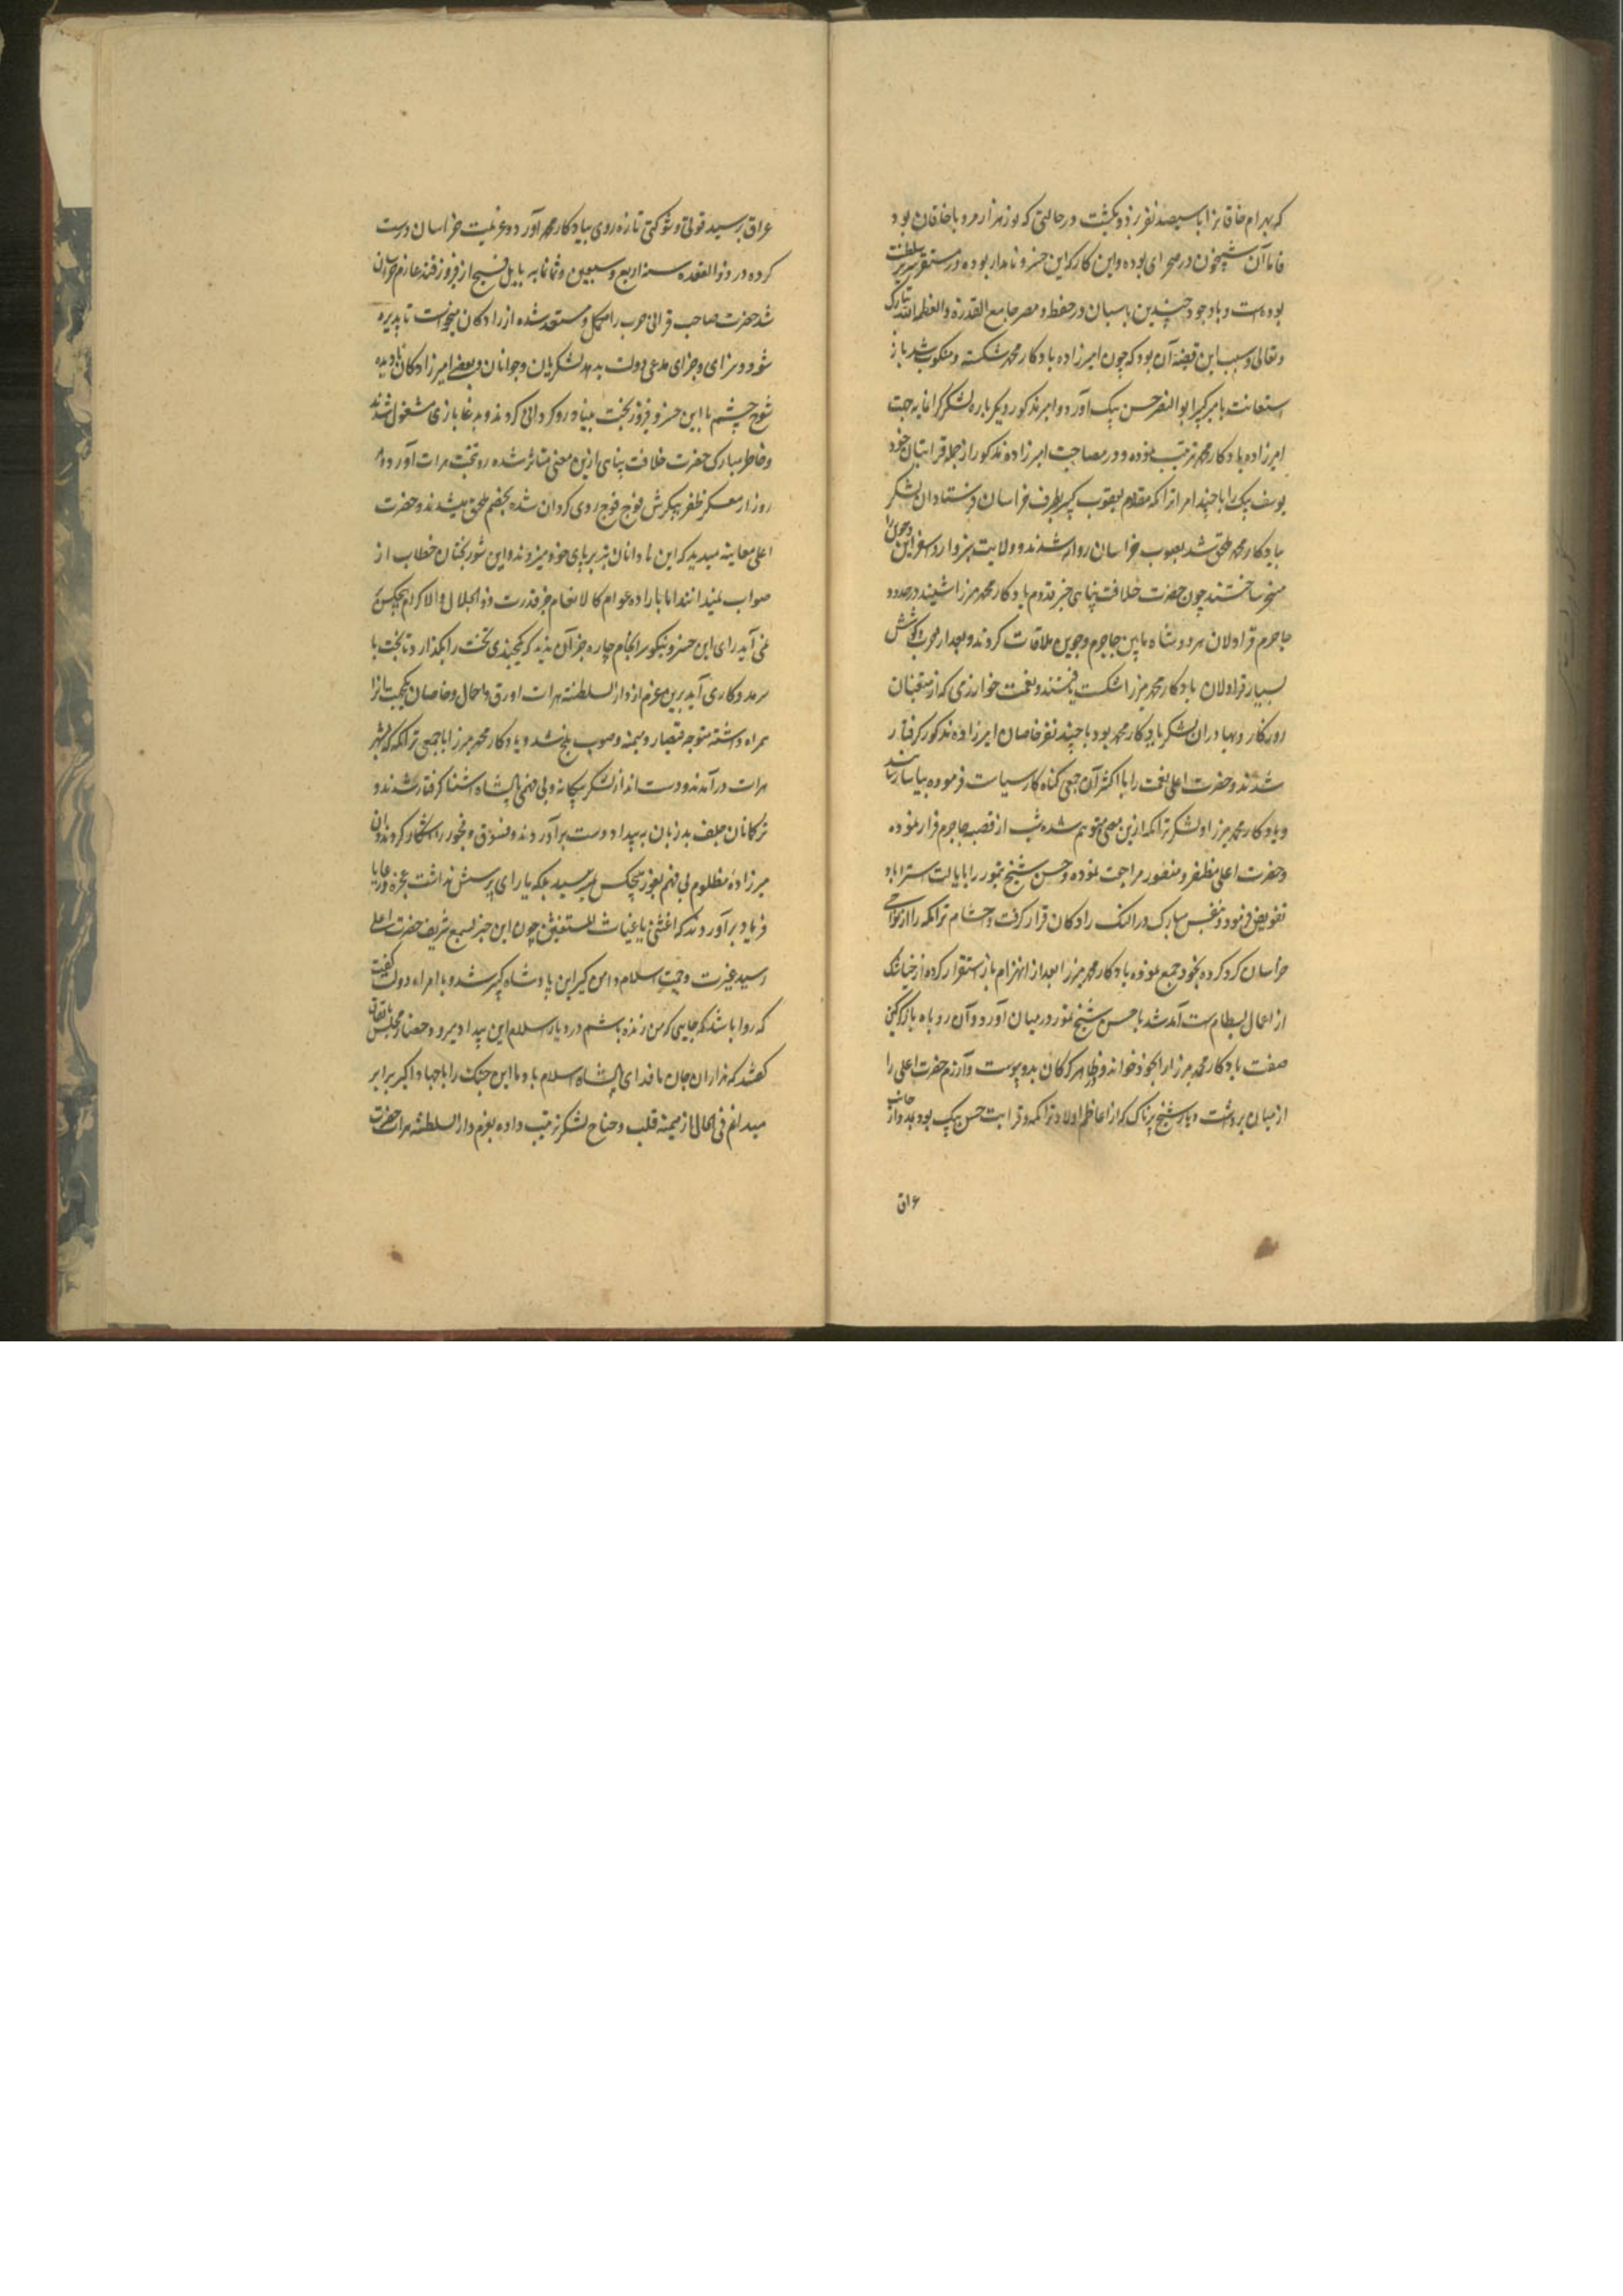 که بهرام خاقانرا با سیصد نفر بزد و بکشت در حالتی که نوزهزار مرد با خاقان بود
فاما آن شبیخون در صحرای بوده و این کار که این خسرو نامدار بوده در مستقر سریر سلطنت
بوده‌است و باوجود چندین پاسبان در حفظ و مصر جامع القدرة والعظمة لله تبارک
و تعالی و سبب این قضیه آن بود که چون امیرزاده یادکار محمد شکسته و منکوب شد باز
استعانت بامیر کبیر ابوالنصر حسن بیک آورد و امیر مذکور دیکرباره لشکر کرانمایه جهت
امیرزاده یادکار محمد ترتیب نموده و در مصاحبت امیرزاده مذکور از جمله قرابتان خود
یوسف بیک را با چند امرا تراکمه مقدم یعقوب بیک بطرف خراسان فرستاد آن لشکر
بیادکار محمد ملحق شد بصوب خراسان روانه شدند و ولایت سبزوار و اسفراین و جوین را
مسخر ساختند چون حضرت خلافت پناهی خبر قدوم یادکار محمد میرزا شنیدند در حدود
جاجرم قراولان هر دو شاه مابین جاجرم و جوین ملاقات کردند و بعد از حرب و کوشش
بسیار قراولان یادکار محمد میرزا شکست یافتند و نعمت خوارزمی که از متعینان
روزکار و بهادران لشکر یادکار محمد بود با چند نفر خاصان امیرزاده مذکور کرفتار
شدند و حضرت اعلی نعمت را با اکثر آن جمعی کناه کار سیاست فرموده بیاسا رسانید
و یادکار محمد میرزا و لشکر تراکمه ازین معنی متوهم شده شب از قصبه جاجرم فرار نموده
و حضرت اعلی مظفر و منصور مراجعت نموده و حسن شیخ تیمور را بایالت استراباد
تفویض فرمود و بنفس مبارک در النک رادکان قرار کرفت و حشام تراکمه را از نواحی
خراسان کرد کرده بخود جمع نموده یادکار محمد میرزا بعد از انهزام باز استقرار کرده از
از اعمال بسطام است آمد شد با حسن شیخ تیمور در میان آورد و آن روباه باز کرکین
صفت یادکار محمد میرزا را بخود خواند و ظاهر کرکان بدو پیوست و آزرم حضرت اعلی را
از میان برداشت و یار شیخ پرناک که از اعاظم اولاد تراکمه و قرابت حسن بیک بود بمدد از جانب
عراق
عراق برسید قوتی و شوکتی تازه روی بیادکار محمد آورد و عزیمت خراسان درست
کرده در ذوالقعده سنه اربع و سبعین و ثمانمایه بایل فسیح از فیروزقند عازم خراسان
شد حضرت صاحب قرانی حرب را مکمل و مستعد شده از رادکان میخواست تا پذیره
شود و سزای و جزای مدعی دولت بدهد لشکریان و جوانان و بعضی امیرزادکان نادیده
شوخ چشم با این خسرو فیروز بخت بنیاد رو کردانی کردند و بدغا بازی مشغول شدند
و خاطر مبارک حضرت خلافت پناهی ازین معنی متاثر شده رو بتخت هرات آورد و هر
روز از معسکر ظفر پیکرش فوج فوج روی کردان شده بخصم ملحق میشدند و حضرت
اعلی معاینه میدید که این نادانان تبر بر پای خود میزدند و این شور بختان خطا از
صواب نمیدانند اما با اراده عوام کالانعام جز قدرت ذوالجلال والاکرام هیچکس
نمی آید رای این خسرو نیکو سرانجام چاره جز آن ندید که یکچندی تخت را بکذارد تا بخت با
سر مدد کاری آید برین عزم از دارالسلطنه هرات اورق و احمال و خاصان یکجهت را
همراه داشته متوجه قیصار و میمنه و صوب بلخ شد و یادکار محمد میرزا با جمعی تراکمه که بشهر
هرات درآمدند و دست انداز لشکر بیکانه و بی فهمی پادشاه آشنا کرفتار شدند و
ترکمانان جلف بد زبان به بیداد دست برآوردند و فسوق و فجور را آشکار کردند و آن
میرزاده مظلوم بی فهم بغور هیچکس نمیرسید بلکه یارای پرسش نداشت عجزه و رعایا
فریاد برآوردند که اغثنی یا غیاث المستغیثین چون این خبر بسمع شریف حضرت اعلی
رسید غیرت و حمیت اسلام دامن کیر این پادشاه کبیر شد و با امراء دولت کفت
که روا باشد که جایی که من زنده باشم در دیار اسلام این بیداد میرود حضار مجلس باتفاق
کفتند که هزاران جان ما فدای پادشاه اسلام باد ما این جنک را با جهاد اکبر برابر
میدانیم فی الحال از میمنه قلب و جناح لشکر ترتیب داده بعزم دارالسلطنه هرات حضرت